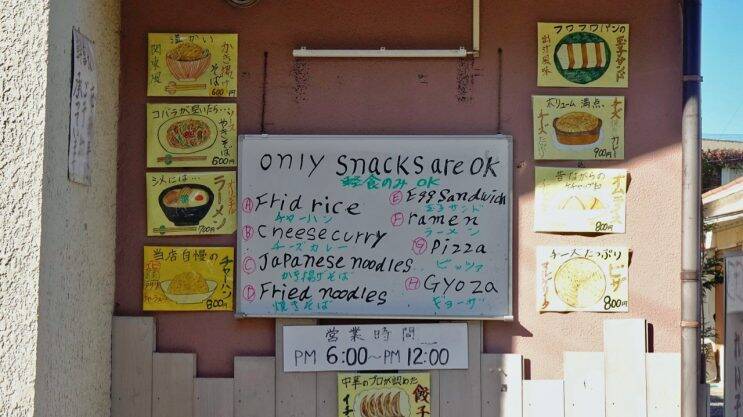 温かい
関東風
かき揚げ
そば
600円
コバラが空いたら…
ソース
やきそば
600円
〆には…
ラーメン
700円
当店自慢の
チャーハン
800円
only snacks are OK
軽食のみ OK
A Frid rice
チャーハン
B Cheese curry
チーズカレー
C Japanese noodles
かき揚げそば
D Fried noodles
焼きそば
E Egg Sandwich
玉子サンド
F ramen
ラーメン
G Pizza
ピッツァ
H Gyoza
ギョーザ
営業時間
PM 6:00～PM 12:00
中華のプロが認めた
餃子
フワフワパンの
玉子サンド
出汁風味
ボリューム満点、
カレー
900円
昔ながらの
800円
チーズたっぷり
ピザ
800円